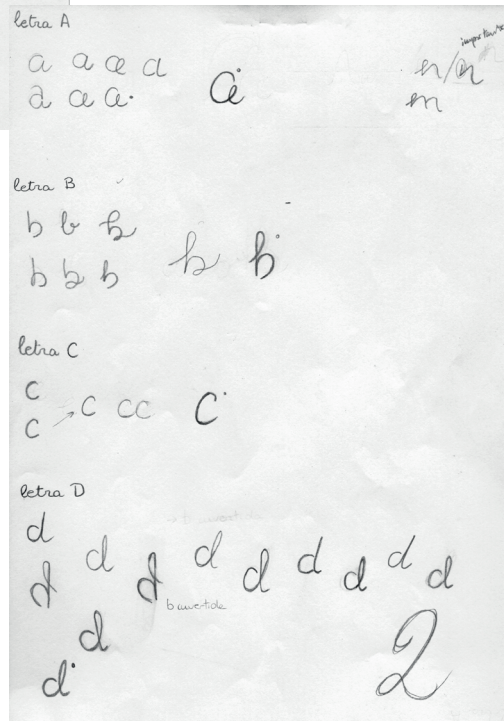 letra A
a a a a
a a a a
n/n
m
letra B
b b b
b b b b b
letra C
c
c c c c c
letra D
d
d d d d d d d d
d d
b invertida
d
d 2